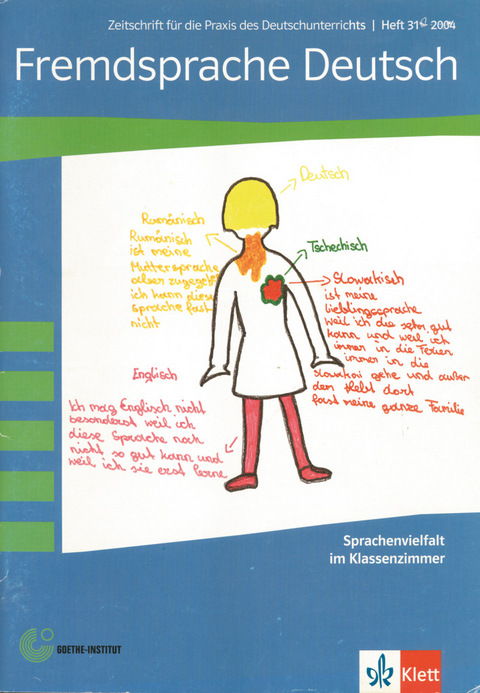 Zeitschrift für die Praxis des Deutschunterrichts | Heft 31 2004
Fremdsprache Deutsch
Deutsch
Rumänisch
Rumänisch
ist meine
Muttersprache
aber zugegeben
ich kann diese
sprache fast
nicht
Tschechisch
Slowakisch
ist meine
lieblingssprache
weil ich die sehr gut
kann und weil ich
immer in die Ferien
immer in die
slowakei gehe und außer
dem lebt dort
fast meine ganze Familie
Englisch
Ich mag Englisch nicht
besonderst weil ich
diese Sprache noch
nicht so gut kann und
weil ich sie erst lerne
Sprachenvielfalt
im Klassenzimmer
GOETHE-INSTITUT
Klett